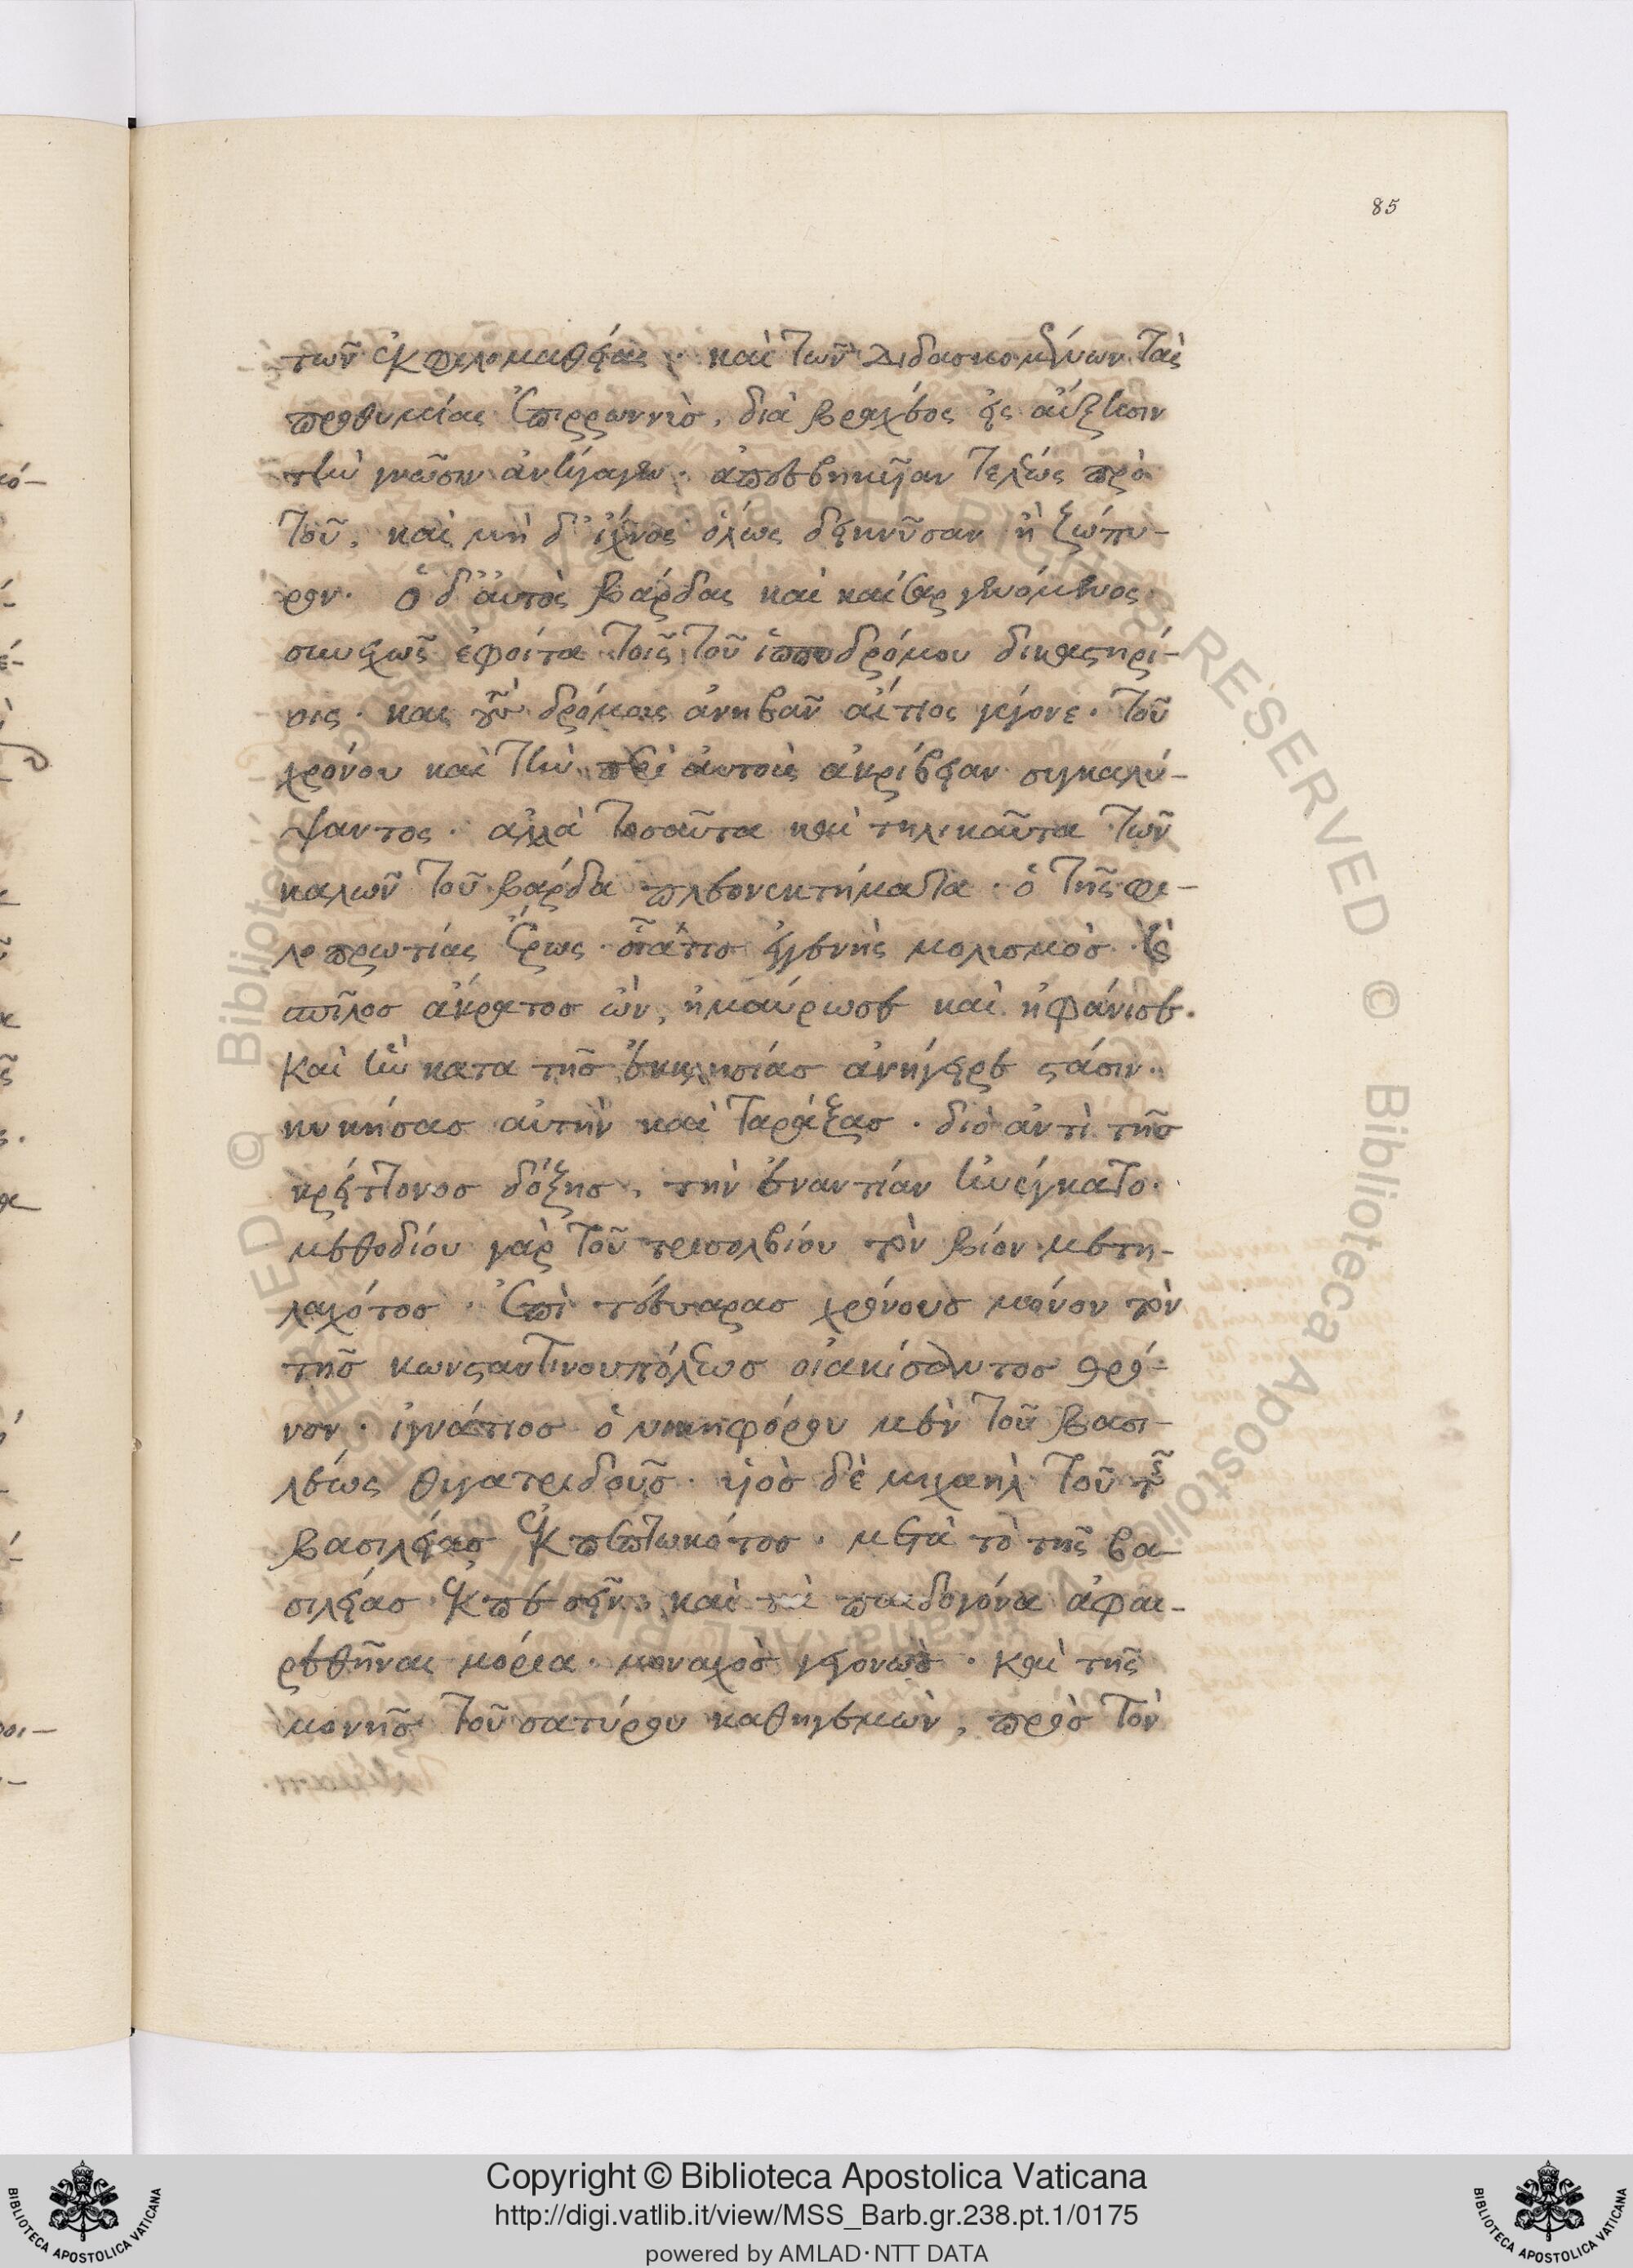 85
των ἐκ φιλομαθείας · καὶ τῶν διδασκομένων τὰς
προθυμίας ἐπιρρωννὺς, διὰ βραχέος εἰς αὔξησιν
τὴν γνῶσιν ἀνήγαγεν · ἀποσβηκεῖαν τελέως πρὸ
τοῦ, καὶ μὴ δ' ἴχνος ὅλως δεικνῦσαν ἢ ζώπυ-
ρον. ὁ δ' αὐτὸς βάρδας καὶ καίσαρ γενόμενος
συνεχῶς ἐφοίτα τοῖς τοῦ ἱπποδρόμου δικαστηρί-
οις · καὶ τοὺς δρόμους ἀνηβᾶν αἴτιος γέγονε · τοῦ
χρόνου καὶ τὴν περὶ αὐτοὺς ἀκρίβειαν συγκαλύ-
ψαντος · ἀλλὰ τοσαῦτα καὶ τηλικαῦτα τῶν
καλῶν τοῦ βάρδα πλεονεκτήματα · ὁ τῆς φι-
λοπρωτίας ἔρως · οἷά τις ἐγγενὴς μολυσμὸς καὶ
σπῖλος ἄκρατος ὢν, ἠμαύρωσε καὶ ἠφάνισε.
καὶ ἣν κατα τῆς ἐκκλησίας ἀνήγειρε στάσιν ·
κυκήσας αὐτὴν καὶ ταράξας · διὸ ἀντὶ τῆς
κρείττονος δόξης, τὴν ἐναντίαν ἠνέγκατο.
μεθοδίου γὰρ τοῦ τρισολβίου τὸν βίον μετη-
λαχότος · ἐπὶ τέσσαρας χρόνους μόνον τὸν
τῆς κωνσταντινουπόλεως οἰακίσαντος θρό-
νον · ἰγνάτιος ὁ νικηφόρου μὲν τοῦ βασι-
λέως θυγατριδοῦς · υἱὸς δὲ μιχαὴλ τοῦ τῆς
βασιλείας ἐκπεπτωκότος · μετὰ τὸ τῆς βα-
σιλείας ἐκπεσεῖν, καὶ τὰ παιδογόνα ἀφαι-
ρεθῆναι μόρια · μοναχὸς γεγονὼς · καὶ τῆς
μονῆς τοῦ σατύρου καθηγεμὼν, πρὸς τὸν
Copyright © Biblioteca Apostolica Vaticana
http://digi.vatlib.it/view/MSS_Barb.gr.238.pt.1/0175
powered by AMLAD·NTT DATA